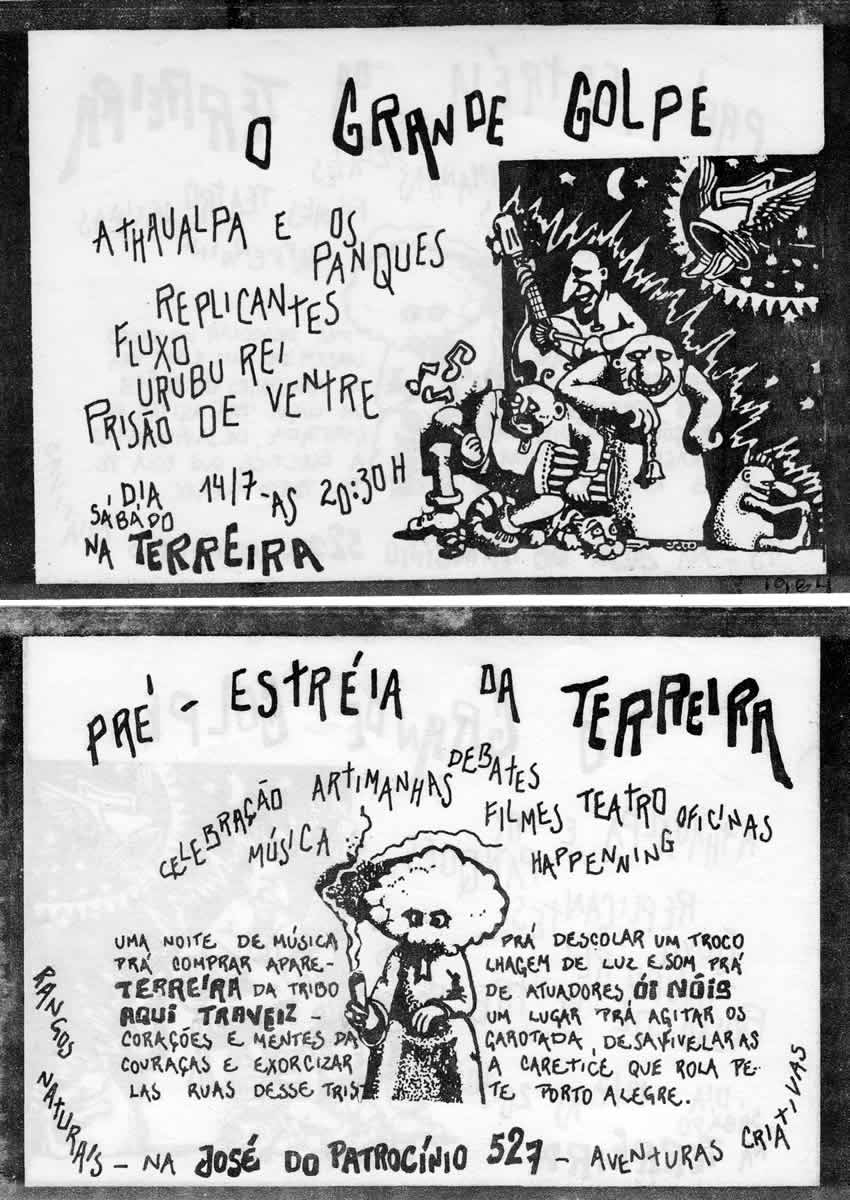 O GRANDE GOLPE
ATHAUALPA E OS
PANQUES
REPLICANTES
FLUXO
URUBU REI
PRISÃO DE VENTRE
DIA 14/7 - AS 20:30 H
SÁBADO
NA TERREIRA
1984
PRÉ - ESTRÉIA DA TERREIRA
CELEBRAÇÃO ARTIMANHAS DEBATES
MÚSICA FILMES TEATRO OFICINAS
HAPPENNING
UMA NOITE DE MÚSICA PRÁ DESCOLAR UM TROCO
PRÁ COMPRAR APARE- LHAGEM DE LUZ E SOM PRÁ
TERREIRA DA TRIBO DE ATUADORES ÓI NÓIS
AQUI TRAVEIZ - UM LUGAR PRÁ AGITAR OS
CORAÇÕES E MENTES DA GAROTADA, DESAFIVELAR AS
COURAÇAS E EXORCIZAR A CARETICE QUE ROLA PE-
LAS RUAS DESSE TRISTE PORTO ALEGRE.
RANGOS NATURAIS - NA JOSÉ DO PATROCÍNIO 527 - AVENTURAS CRIATIVAS